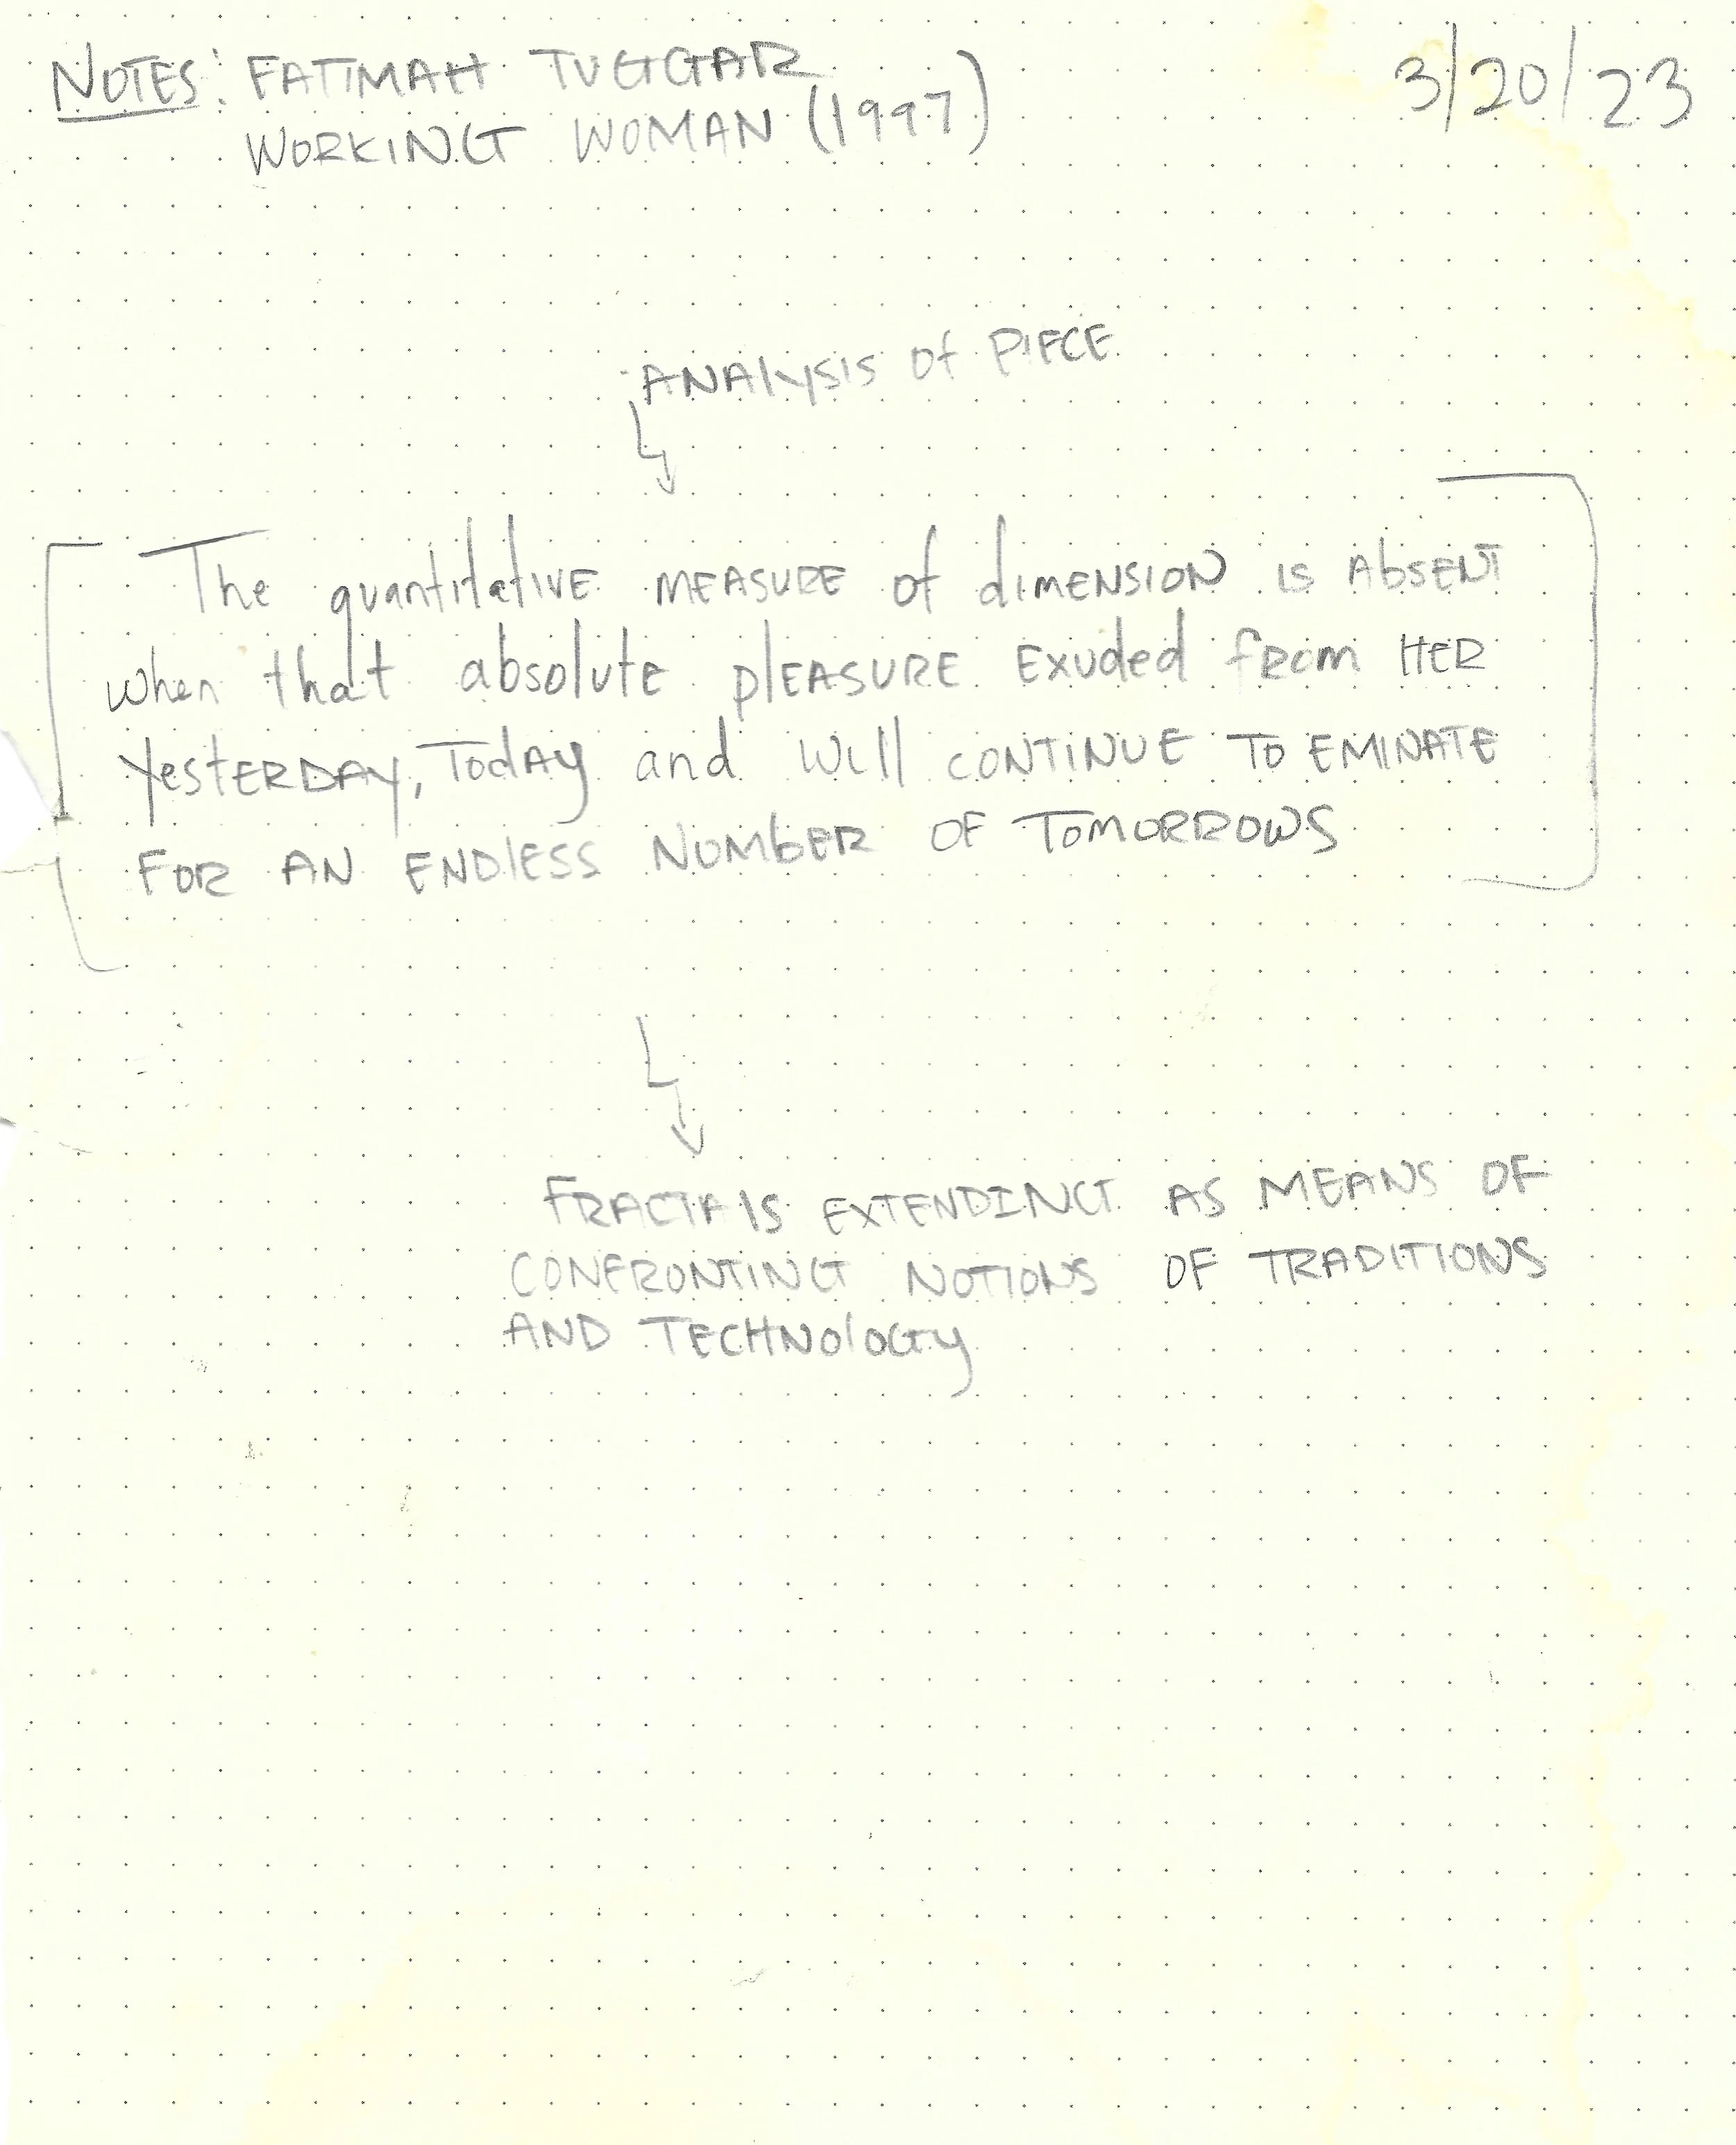 NOTES: FATIMAH TUGGAR
WORKING WOMAN (1997)
3/20/23
- ANALYSIS of PIECE
The quantitative MEASURE of dIMENSION IS AbSENT
when that absolute plEASURE Exuded fRom HER
YesTERDAY, TodAy and will CONTINUE TO EMINATE
FOR AN ENDLESS NUMbER OF TOMORROWS
FRACTAlS EXTENDING AS MEANS OF
CONFRONTING NOTIONS OF TRADITIONS
AND TECHNOlOGy